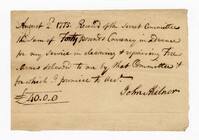 August 2d 1775. Received of the Secret Committee
the Sum of Forty pounds Currency in advance
for my Service in cleaning & repairing Fire
Arms delivered to me by that Committee &
for which I promise to
£40.0.0
John